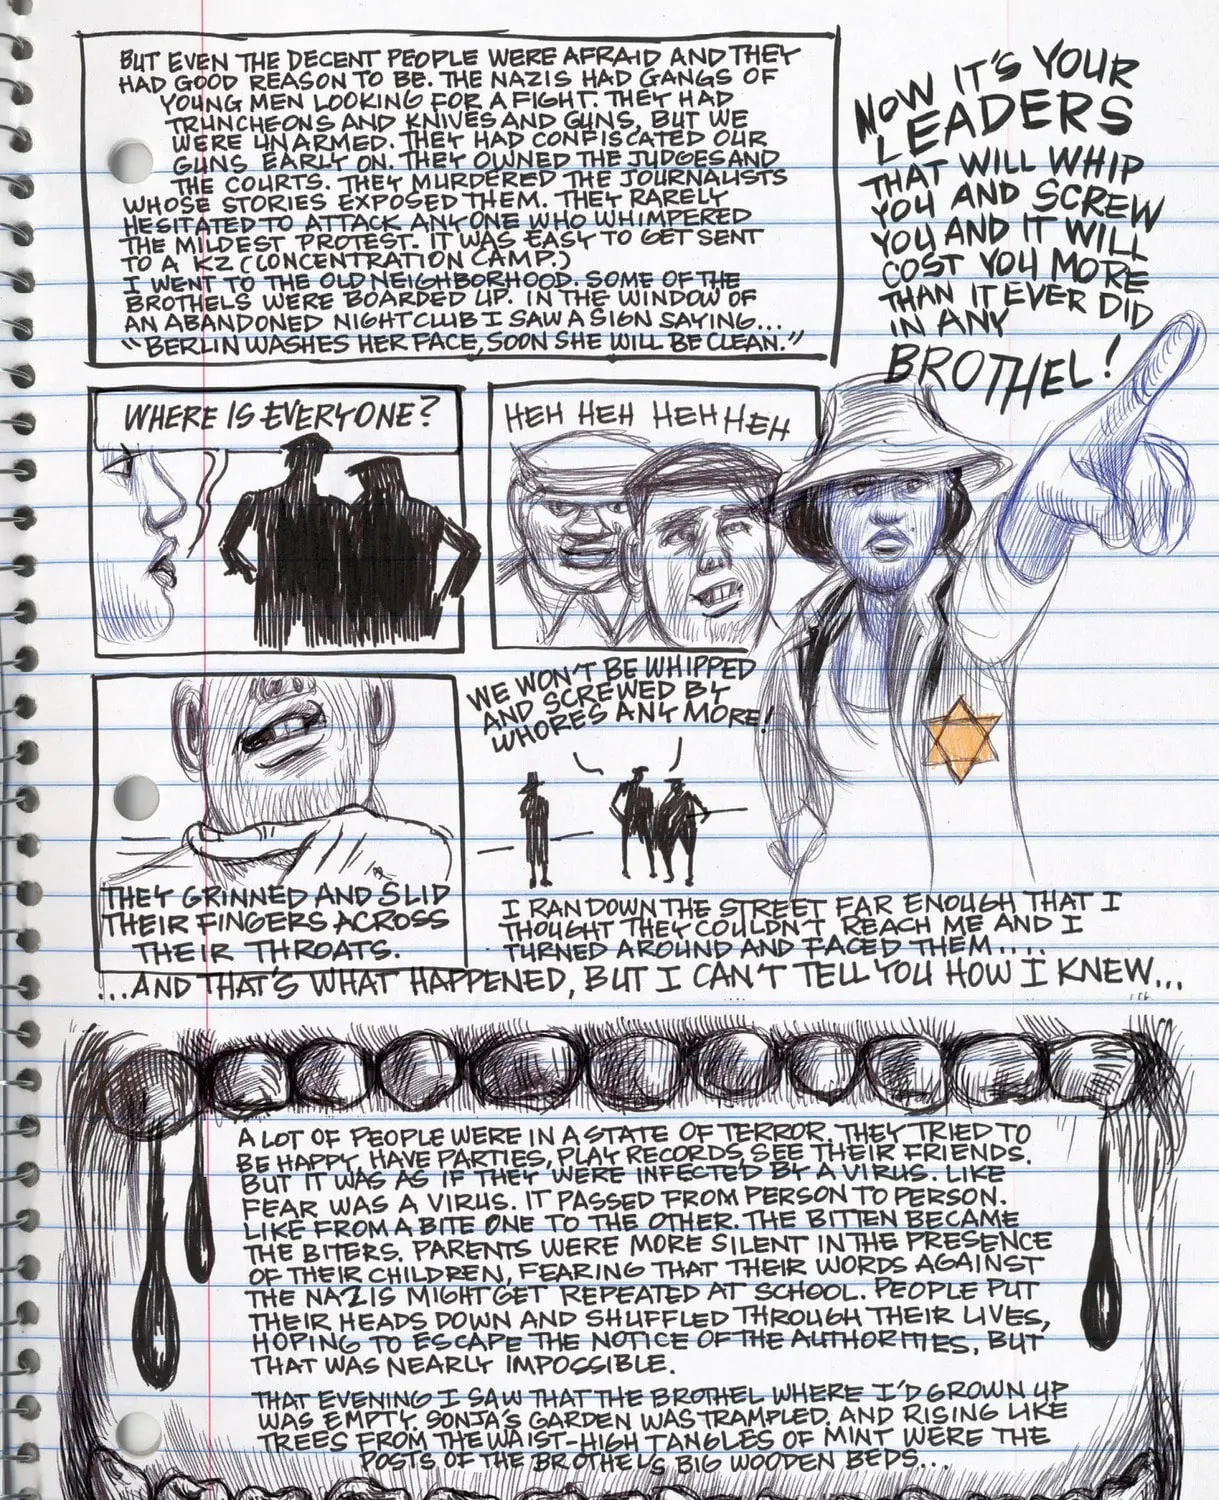 BUT EVEN THE DECENT PEOPLE WERE AFRAID AND THEY
HAD GOOD REASON TO BE. THE NAZIS HAD GANGS OF
YOUNG MEN LOOKING FOR A FIGHT. THEY HAD
TRUNCHEONS AND KNIVES AND GUNS, BUT WE
WERE UNARMED. THEY HAD CONFISCATED OUR
GUNS EARLY ON. THEY OWNED THE JUDGES AND
THE COURTS. THEY MURDERED THE JOURNALISTS
WHOSE STORIES EXPOSED THEM. THEY RARELY
HESITATED TO ATTACK ANYONE WHO WHIMPERED
THE MILDEST PROTEST. IT WAS EASY TO GET SENT
TO A KZ (CONCENTRATION CAMP.)
I WENT TO THE OLD NEIGHBORHOOD. SOME OF THE
BROTHELS WERE BOARDED UP. IN THE WINDOW OF
AN ABANDONED NIGHTCLUB I SAW A SIGN SAYING...
"BERLIN WASHES HER FACE, SOON SHE WILL BE CLEAN."
WHERE IS EVERYONE?
HEH HEH HEH HEH
THEY GRINNED AND SLID
THEIR FINGERS ACROSS
THEIR THROATS.
WE WON'T BE WHIPPED
AND SCREWED BY
WHORES ANYMORE!
I RAN DOWN THE STREET FAR ENOUGH THAT I
THOUGHT THEY COULDN'T REACH ME AND I
TURNED AROUND AND FACED THEM....
NOW IT'S YOUR
LEADERS
THAT WILL WHIP
YOU AND SCREW
YOU AND IT WILL
COST YOU MORE
THAN IT EVER DID
IN ANY
BROTHEL!
...AND THAT'S WHAT HAPPENED, BUT I CAN'T TELL YOU HOW I KNEW...
A LOT OF PEOPLE WERE IN A STATE OF TERROR. THEY TRIED TO
BE HAPPY, HAVE PARTIES, PLAY RECORDS, SEE THEIR FRIENDS.
BUT IT WAS AS IF THEY WERE INFECTED BY A VIRUS. LIKE
FEAR WAS A VIRUS. IT PASSED FROM PERSON TO PERSON.
LIKE FROM A BITE ONE TO THE OTHER. THE BITTEN BECAME
THE BITERS. PARENTS WERE MORE SILENT IN THE PRESENCE
OF THEIR CHILDREN, FEARING THAT THEIR WORDS AGAINST
THE NAZIS MIGHT GET REPEATED AT SCHOOL. PEOPLE PUT
THEIR HEADS DOWN AND SHUFFLED THROUGH THEIR LIVES,
HOPING TO ESCAPE THE NOTICE OF THE AUTHORITIES, BUT
THAT WAS NEARLY IMPOSSIBLE.
THAT EVENING I SAW THAT THE BROTHEL WHERE I'D GROWN UP
WAS EMPTY. SONJA'S GARDEN WAS TRAMPLED, AND RISING LIKE
TREES FROM THE WAIST-HIGH TANGLES OF MINT WERE THE
POSTS OF THE BROTHEL'S BIG WOODEN BEDS...